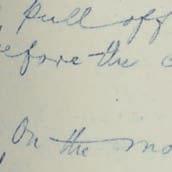 pull off
before the
On the